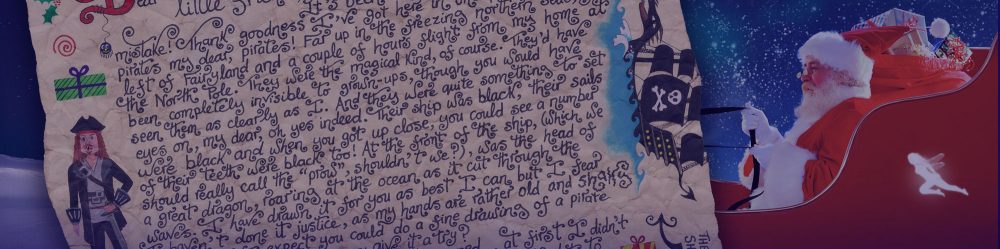 Dear little It's been
mistake! Thank goodness I've got here in
Pirates my dear, pirates! Far up in the freezing, northern seas,
left of Fairyland and a couple of hours flight from my home at
the North Pole. They were the magical kind, of course. They'd have
been completely invisible to grown-ups, though you would have
seen them as clearly as I. And they were quite something to set
eyes on, my dear, oh yes indeed. Their ship was black, their sails
were black and when you got up close, you could see a number
of their teeth were black too! At the front of the ship, (which we
should really call the 'prow', shouldn't we?), was the head of
a great dragon, roaring at the ocean as it cut through the
waves. I have drawn it for you as best I can, but I fear
I haven't done it justice, as my hands are rather old and shaky
expect you could do a fine drawing of a pirate
give it a try! at first I didn't
THE